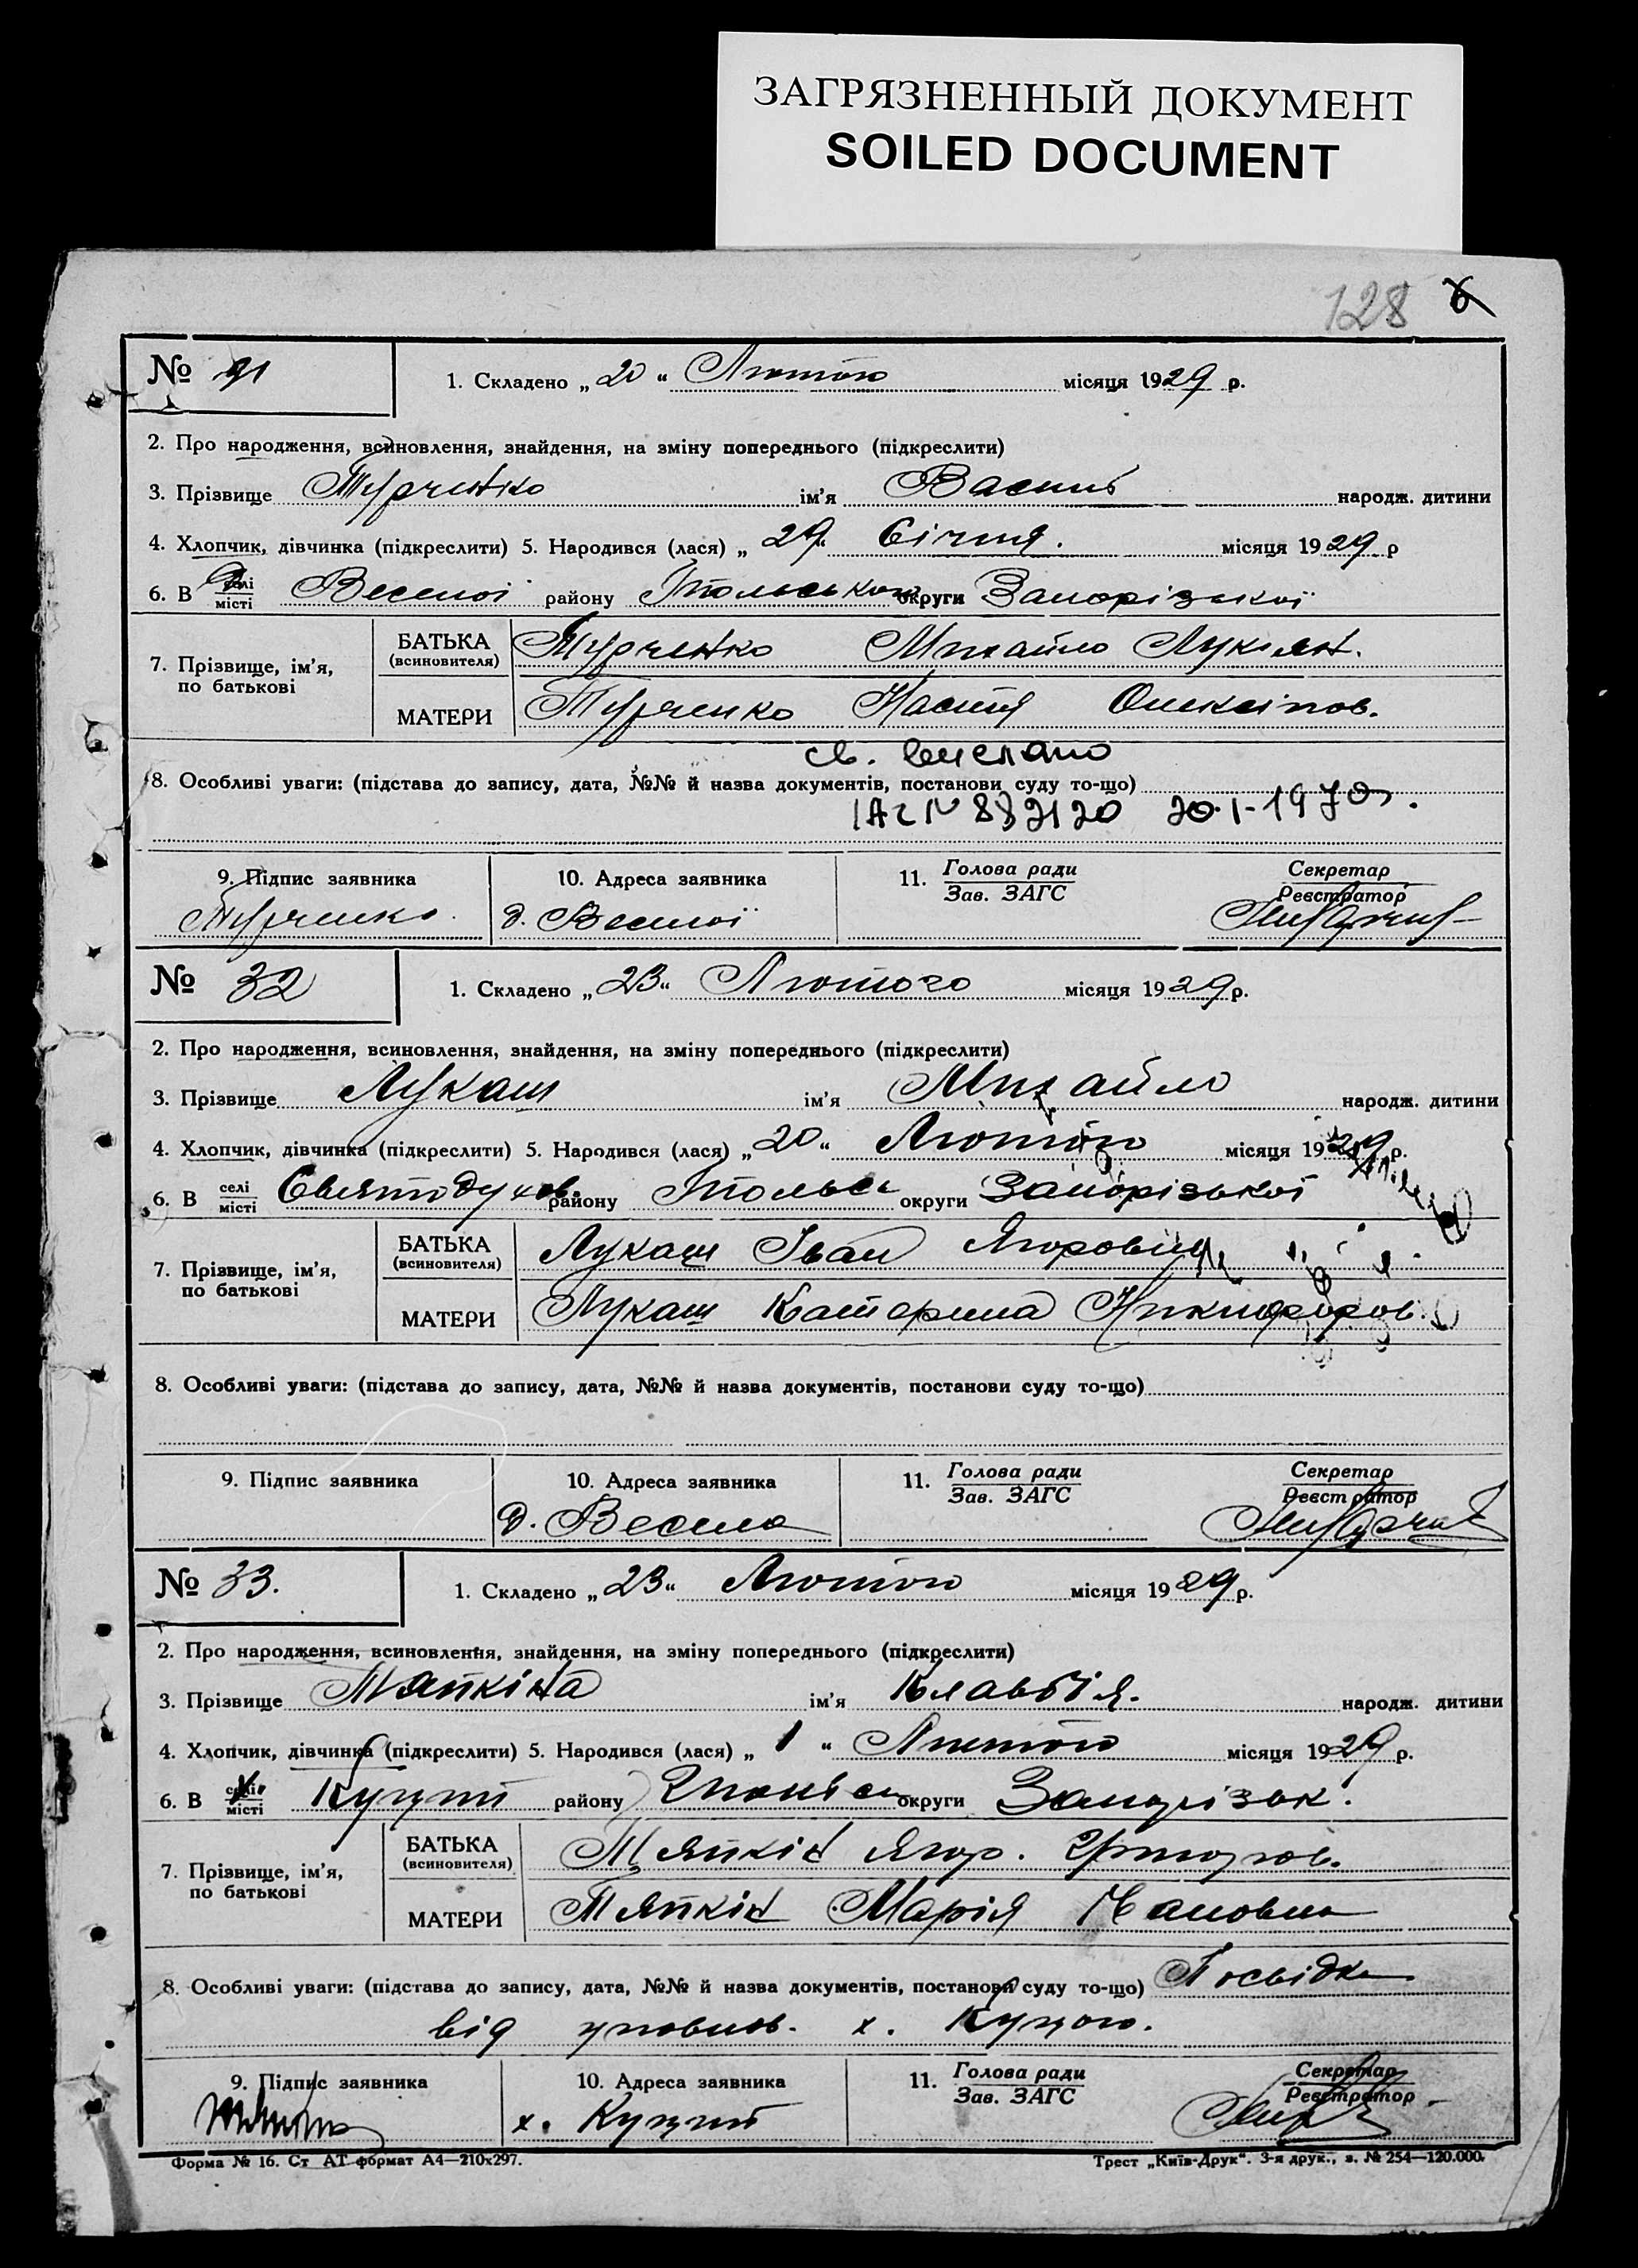 ЗАГРЯЗНЕННЫЙ ДОКУМЕНТ
SOILED DOCUMENT
128 6
№ 31
1. Складено „ 20 “ Лютого місяця 1929 р.
2. Про народження, всиновлення, знайдення, на зміну попереднього (підкреслити)
3. Прізвище Турченко ім'я Василь народж. дитини
4. Хлопчик, дівчинка (підкреслити) 5. Народився (лася) „ 29 “ Січня. місяця 1929 р
6. В селі місті Веселої району округи Запорізької
7. Прізвище, ім'я, по батькові
БАТЬКА (всиновителя) Турченко Михайло Лукиян.
МАТЕРИ Турченко Настя Олексіпов.
св. выслано
8. Особливі уваги: (підстава до запису, дата, №№ й назва документів, постанови суду то-що)
20-I-1970г.
9. Підпис заявника Турченко
10. Адреса заявника д. Веселої
11. Голова ради Зав. ЗАГС
Секретар Реєстратор
№ 32
1. Складено „ 23 “ Лютого місяця 1929 р.
2. Про народження, всиновлення, знайдення, на зміну попереднього (підкреслити)
3. Прізвище Лукаш ім'я Михайло народж. дитини
4. Хлопчик, дівчинка (підкреслити) 5. Народився (лася) „ 20 “ Лютого місяця 1929 р.
6. В селі місті Святодухов. району округи Запорізької
7. Прізвище, ім'я, по батькові
БАТЬКА (всиновителя) Лукаш Іван Ягорович
МАТЕРИ Лукаш Катерина Никифоров.
8. Особливі уваги: (підстава до запису, дата, №№ й назва документів, постанови суду то-що)
9. Підпис заявника
10. Адреса заявника д. Весела
11. Голова ради Зав. ЗАГС
Секретар Реєстратор
№ 33.
1. Складено „ 23 “ Лютого місяця 1929 р.
2. Про народження, всиновлення, знайдення, на зміну попереднього (підкреслити)
3. Прізвище Тяпкіна ім'я Клавдія. народж. дитини
4. Хлопчик, дівчинка (підкреслити) 5. Народився (лася) „ 1 “ Лютого місяця 1929 р.
6. В селі місті Куций району округи Запорізьк.
7. Прізвище, ім'я, по батькові
БАТЬКА (всиновителя) Тяпкін Ягор. Григоров.
МАТЕРИ Тяпкін Марія
8. Особливі уваги: (підстава до запису, дата, №№ й назва документів, постанови суду то-що) Посвідка
від уповнов. х. Куцого.
9. Підпис заявника
10. Адреса заявника х. Куций
11. Голова ради Зав. ЗАГС
Секретар Реєстратор
Форма № 16. Ст АТ формат А4—210х297.
Трест „Київ-Друк“. 3-я друк., з. № 254—120.000.